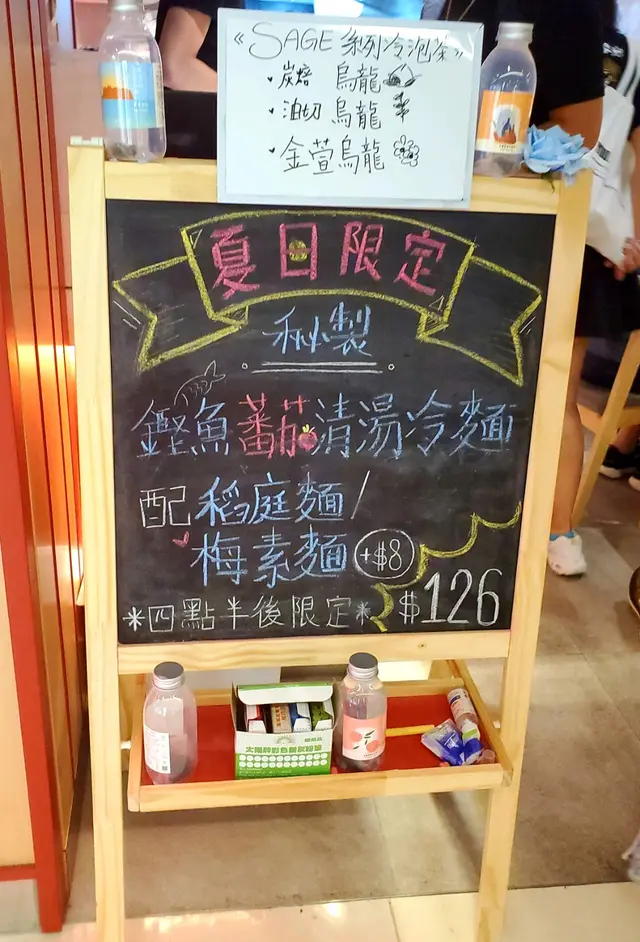 《SAGE 系列冷泡茶》
·炭焙 烏龍
·油切 烏龍
·金萱烏龍
夏日限定
秘製
鰹魚蕃茄清湯冷麵
配稻庭麵/
梅素麵 +$8
*四點半後限定* $126
太陽牌彩色無灰粉筆